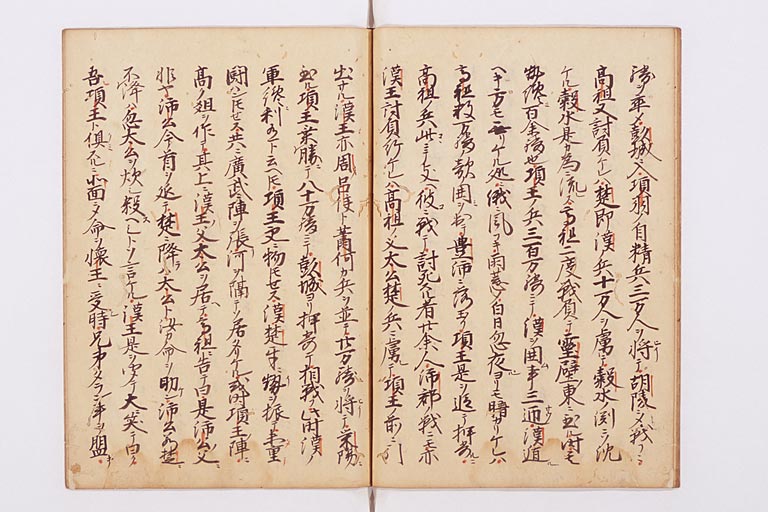 勝ツ率メ彭城ニ入項羽ハ自精兵三万人ヲ将テ胡陵ニテ戦フニ
高祖又討負ケレハ楚即漢兵十万人ヲ虜テ穀水ノ渕ニ沈
ケル穀水是カ為ニ流ス高祖二度戦負テ霊壁ノ東ニ至ル討モ
数百余騎也項王ノ兵三百万騎ニテ漢ヲ囲事三迊漢遁
ヘキ方モ無リケル処ニ俄風フキ雨荒シテ白日忽夜ヨリモ暗カリケレハ
高祖数万騎ノ敵囲ヲ出テ豊沛ニ落玉フ項王是ヲ追テ押寄
高祖兵此ニテ支ヘ彼ニ戦テ討死スル者廿余人沛郡ノ戦ニモ亦
漢王討負ケレハ高祖ノ父太公楚兵ニ虜テ項王前ニ引
出サル漢王亦周呂侯ト蕭何カ兵ヲ並テ廿万騎ヲ将テ栄陽
至ル項王乗勝テ八十万騎ニテ彭城ヨリ押寄テ相戦此時漢ノ
軍纔利有ト云ヘトモ項王更ニ物トモセス漢楚牛角ノ振ヲ未定
闘ハントモセス共ニ廣武ニ陣ヲ張河ヲ隔テ居タリケル或時項王陣ニ
高クノ俎ヲ作テ其上ニ漢王父太公ヲ居テ高祖ニ告テ曰是沛公父
非ヤ沛公今首ヲ延テ楚ニ降ハ太公ト汝カ命ヲ助沛公若楚
不降忽太公ヲ炊殺ヘシトソ言ケル漢王是ヲ聞テ大笑テ曰ク
吾項王ト倶ニ北面シテ命ヲ懐王ニ受時兄弟タラン事ヲ盟